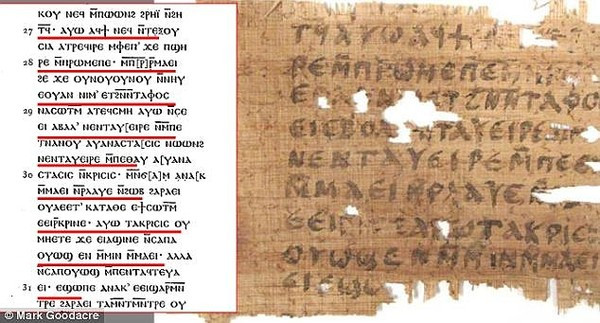 ⲕⲟⲩ ⲛⲉϥ ⲙ̅ⲡⲱⲱⲛϩ ϩⲣⲏⲓ̈ ⲛ̅ϩⲏ
27 ⲧϥ̅· ⲁⲩⲱ ⲁϥϯ ⲛⲉϥ ⲛ̅ⲧⲉⲝⲟⲩ
ⲥⲓⲁ ⲁⲧⲣⲉϥⲓⲣⲉ ⲙ̅ⲫⲉⲡ' ϫⲉ ⲡϣⲏ
28 ⲣⲉ ⲙ̅ⲡⲣⲱⲙⲉⲡⲉ· ⲙ̅ⲡ[ⲣ̅]ⲣ̅ⲙⲁⲉⲓ
ϩⲉ ϫⲉ ⲟⲩⲛⲟⲩⲟⲩⲛⲟⲩ ⲛ̅ⲛⲏⲩ
ⲉⲟⲩⲁⲛ ⲛⲓⲙ' ⲉⲧϩⲛ̅ⲛ̅ⲧⲁⲫⲟⲥ
29 ⲛⲁⲥⲱⲧⲙ̅ ⲁⲧⲉϥⲥⲙⲏ ⲁⲩⲱ ⲛ̅ⲥⲉ
ⲉⲓ ⲁⲃⲁⲗ' ⲛⲉⲛⲧⲁⲩ[ⲉⲓⲣⲉ ⲛ̅ⲙ̅ⲡⲉ
ⲧⲛⲁⲛⲟⲩ ⲁⲩⲁⲛⲁⲥⲧⲁ[ⲥⲓⲥ ⲛⲱⲱⲛϩ
ⲛⲉⲛⲧⲁⲩⲉⲓⲣⲉ ⲙ̅ⲡⲉⲑⲁⲩ ⲁ[ⲩⲁⲛⲁ
30 ⲥⲧⲁⲥⲓⲥ ⲛ̅ⲕⲣⲓⲥⲓⲥ· ⲙⲛ̅ϭ[ⲁ]ⲙ ⲁⲛⲁ[ⲕ
ⲙ̅ⲙⲁⲉⲓ ⲛ̅ⲣ̅ⲗⲁⲩⲉ ⲛ̅ϩⲱⲃ ϩⲁⲣⲁⲉⲓ
ⲟⲩⲁⲉⲉⲧ' ⲕⲁⲧⲁⲑⲉ ⲉϯⲥⲱⲧⲙ̅
ⲉⲉⲓⲣ̅ⲕⲣⲓⲛⲉ· ⲁⲩⲱ ⲧⲁⲕⲣⲓⲥⲓⲥ ⲟⲩ
ⲙⲏⲉⲧⲉ ϫⲉ ⲉⲓ̈ϣⲓⲛⲉ ⲛ̅ⲥⲁⲡⲁ
ⲟⲩⲱϣ ⲉⲛ ⲙ̅ⲙⲓⲛ ⲙ̅ⲙⲁⲉⲓ· ⲁⲗⲗⲁ
ⲛⲥⲁⲡⲟⲩⲱϣ ⲙ̅ⲡⲉⲛⲧⲁϥⲧⲉⲩⲁ
31 ⲉⲓ· ⲉϣⲱⲡⲉ ⲁⲛⲁⲕ' ⲉⲉⲓϣⲁⲣⲙⲛ̅
ⲧⲣⲉ ϩⲁⲣⲁⲉⲓ ⲧⲁⲙⲛ̅ⲧⲙⲛ̅ⲧⲣⲉ ⲟⲩ
ⲧϥ ⲁⲩⲱ ⲁϥϯ
ⲣⲉ ⲙ̅ⲡⲣⲱⲙⲉⲡⲉ
ⲉⲧϩⲛ̅ⲛ̅ⲧⲁⲫⲟ
ⲉⲓ ⲉⲃⲟⲗ ⲛⲧⲁⲩⲉⲓⲣⲉ
ⲛⲉⲛⲧⲁⲩⲉⲓⲣⲉ ⲙ̅ⲡⲉ
ⲙ̅ⲙⲁⲉⲓ ⲛ̅ⲣⲗⲁⲩⲉ
ⲉⲉⲓ ⲱ ⲧⲁⲕⲣⲓⲥ
ⲟⲩⲱϣ ⲉⲛ ⲙ̅ⲙⲓⲛ ⲙ̅ⲙⲁⲉⲓ
ⲉⲓ ⲉϣⲱ
© Mark Goodacre